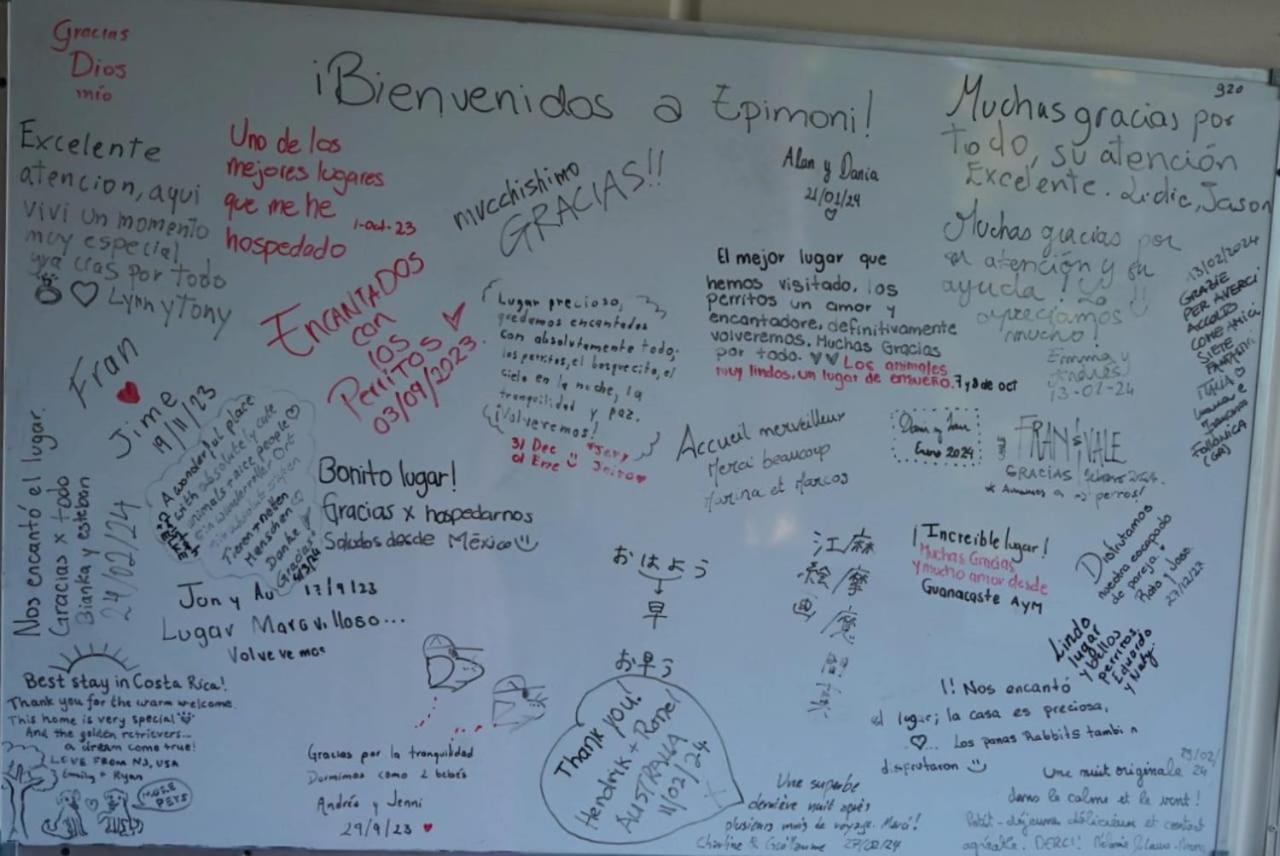 Gracias
Dios
mío
¡Bienvenidos a Epimoni!
920
Muchas gracias por
todo, su atención
Excelente. Lidic, Jason
Excelente
atencion, aqui
vivi un momento
muy especial
gracias por todo
Lynn y Tony
Uno de los
mejores lugares
que me he
hospedado
1-oct-23
mucchishimo
GRACIAS!!
Alan y Dania
21/01/24
Muchas gracias por
su atención y su
ayuda! Lo
apreciamos
mucho!
Emma y
Andrés
13-02-24
13/02/2024
GRAZIE
PER AVERCI
ACCOLTO
COME AMICI
SIETE
FANTASTICI
ITALIA
FOLLONICA
(GR)
ENCANTADOS
con
los
Perritos
03/09/2023
Lugar precioso,
quedamos encantados
con absolutamente todo;
los perritos, el bosquecito, el
cielo en la noche, la
tranquilidad y paz.
¡Volveremos!
31 Dec
01 Ene
El mejor lugar que
hemos visitado, los
perritos un amor y
encantadore, definitivamente
volveremos. Muchas Gracias
por todo. Los animales
muy lindos, un lugar de ensueño. 7 y 8 de oct
Fran
Jime
19/11/23
Nos encantó el lugar.
Gracias x todo
Bianka y esteban
24/02/24
A wonderful place
with absolutely cute
animals + nice people
Ein wundervoller Ort
Tieren + netten
Menschen
Danke
Gracias
Bonito lugar!
Gracias x hospedarnos
Saludos desde México
Accueil merveilleux
Merci beaucoup
Marina et Marcos
Enero 2024
FRAN & VALE
GRACIAS, febrero 2024.
* Amamos a perros!
Jon y Au 17/9/23
Lugar Maravilloso...
Volvevemos
おはよう
早
お早う
江麻
絵摩
画/魔
¡Increible lugar!
Muchas Gracias
y mucho amor desde
Guanacaste AyM
Disfrutamos
nuestra escapada
de pareja
27/12/23
Lindo
lugar
y bellos
perritos,
Eduardo
y Naty.
Best stay in Costa Rica!
Thank you for the warm welcome.
This home is very special
And the golden retrievers...
a dream come true!
LOVE FROM NJ, USA
Emily + Ryan
MORE
PETS
Gracias por la tranquilidad
Dormimos como 2 bebés
Andréa y Jenni
29/9/23
Thank you!
Hendrik + Ronel
AUSTRALIA
11/02/24
1! Nos encantó
el lugar; la casa es preciosa,
... Los panas Rabbits tambi n
disfrutaron
Une superbe
dernière nuit après
plusieurs mois de voyage. Merci!
Charline & Guillaume 27/02/24
Une nuit originale
dans le calme et le vent!
Petit-déjeuner délicieux et contact
agréable. MERCI!